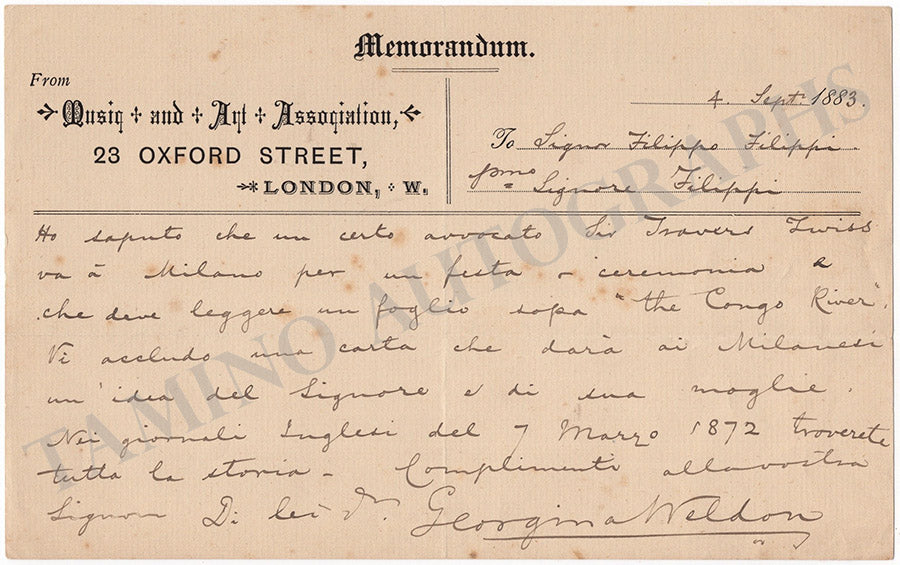 Memorandum.
From
Music and Art Association,
23 OXFORD STREET,
LONDON, W.
4. Sept. 1883.
To Signor Filippo Filippi.
pmo Signore Filippi
Ho saputo che un certo avvocato Sir Travers Twiss
va á Milano per un festa - ceremonia e
che deve leggere un foglio sopa "the Congo River".
Vi accludo una carta che darà ai Milanesi
un' idea del Signore e di sua moglie.
Nei giornali Inglesi del 7 Marzo 1872 troverete
tutta la storia - Complimenti alla vostra
Signora Di lei Georgina Weldon
TAMINO AUTOGRAPHS